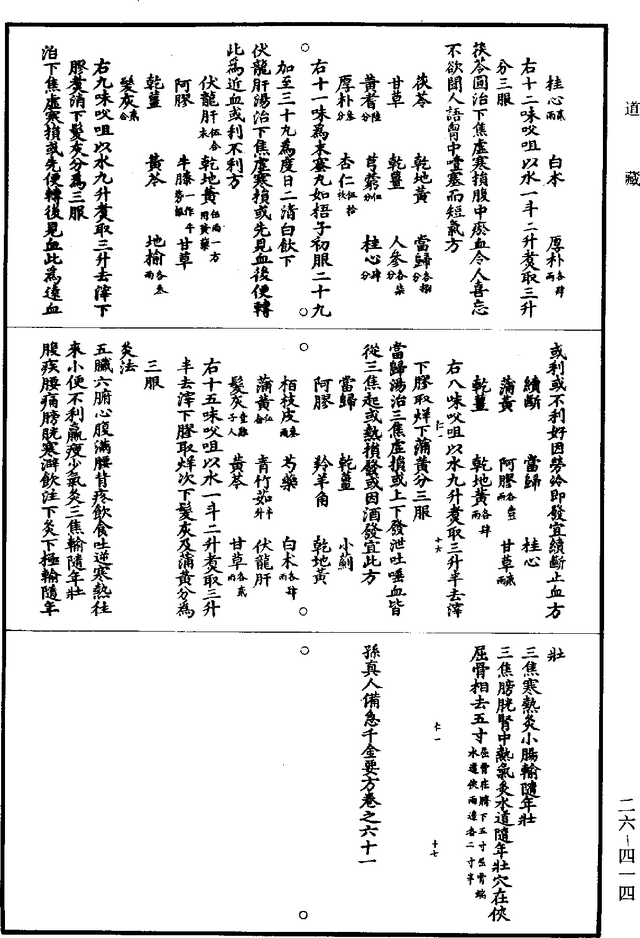 道藏
桂心貳兩 白朮 厚朴各肆兩
右十二味㕮咀以水一斗二升煑取三升
分三服
茯苓圓治下焦虛寒損腹中瘀血令人喜忘
不欲聞人語胷中噎塞而短氣方
茯苓 乾地黃 當歸各捌分
甘草 乾薑 人參各柒分
黃耆陸分 芎藭伍分 桂心肆分
厚朴叁分 杏仁伍拾枚
右十一味爲末蜜丸如梧子初服二十丸
加至三十丸爲度日二清白飲下
伏龍肝湯治下焦虛寒損或先見血後便轉
此爲近血或利不利方
伏龍肝伍合末 乾地黃伍兩一方用黃蘗
阿膠 牛膝一作牛蒡根 甘草
乾薑 黃芩 地榆各叁兩
髮灰貳合
右九味㕮咀以水九升煑取三升去滓下
膠煑消下髮灰分爲三服
治下焦虛寒損或先便轉後見血此爲遠血
或利或不利好因勞冷即發宜續斷止血方
續斷 當歸 桂心
蒲黃 阿膠各壹兩 甘草貳兩
乾薑 乾地黃各肆兩
右八味㕮咀以水九升煑取三升半去滓
下膠取烊下蒲黃分三服
當歸湯治三焦虛損或上下發泄吐唾血皆
從三焦起或熱損發或因酒發宜此方
當歸 乾薑 小薊
阿膠 羚羊角 乾地黃
栢枝皮叁兩 芍藥 白朮各肆兩
蒲黃伍合 青竹茹半升 伏龍肝
髮灰壹雞子大 黃芩 甘草各貳兩
右十五味㕮咀以水一斗二升煑取三升
半去滓下膠取烊次下髮灰及蒲黃分爲
三服
灸法
五臟六腑心腹滿腰背疼飲食吐逆寒熱往
來小便不利羸瘦少氣灸三焦輸隨年壯
腹疾腰痛膀胱寒澼飲注下灸下極輸隨年
壯
三焦寒熱灸小腸輸隨年壯
三焦膀胱腎中熱氣灸水道隨年壯穴在俠
屈骨相去五寸屈骨在臍下五寸屈骨端水道俠兩邊各二寸半
孫真人備急千金要方卷之六十一
二六-四一四